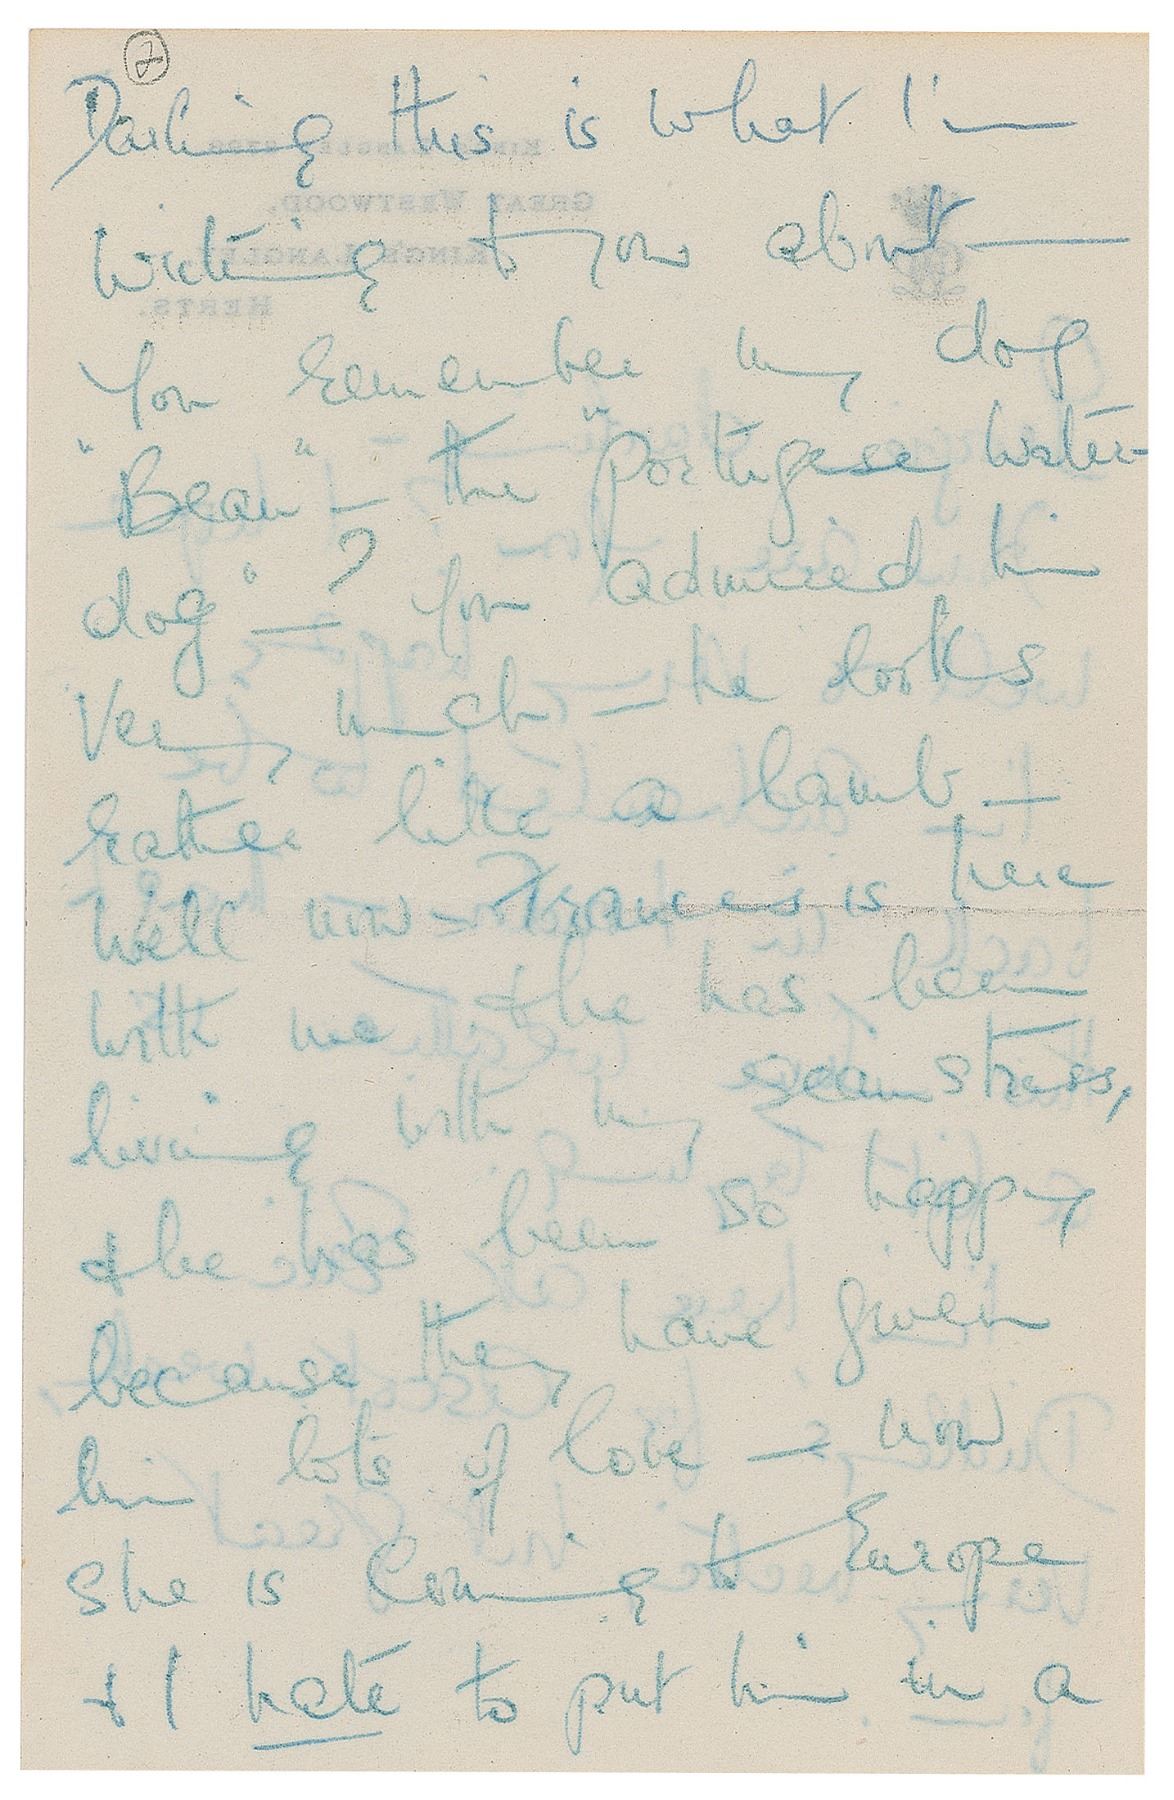 2
Darling this is what I'm
writing to you about —
You remember my dog
"Bean" — the "Portugese water-
dog" — ? You admired him
very much — he looks
rather like a lamb —
Well now — Frances is here
with me & he has been
living with my seamstress,
& he has been so happy
because they have given
him lots of love — now
she is coming to Europe
& I hate to put him in a
GREAT WESTWOOD,
KING'S LANGLEY,
HERTS.